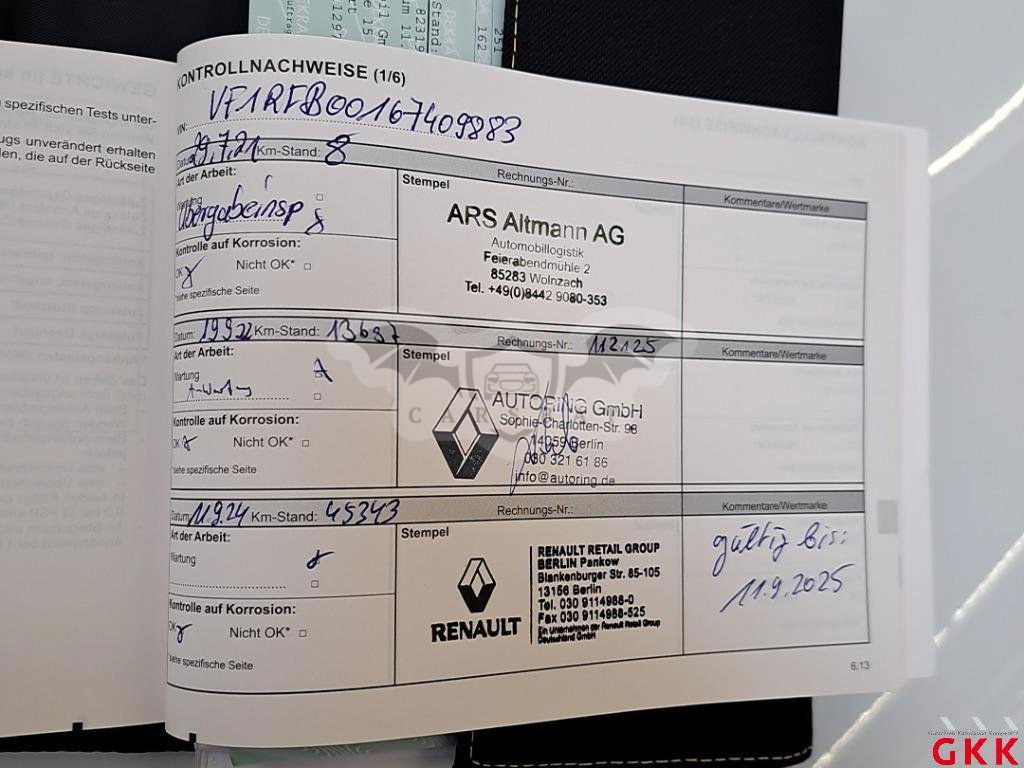 KONTROLLNACHWEISE (1/6)
VIN: VF1RFB00167409883
Datum: 29.7.21 Km-Stand: 8 Rechnungs-Nr.:
Art der Arbeit:
Wartung
Übergabeinsp
Kontrolle auf Korrosion:
OK Nicht OK*
*siehe spezifische Seite
Stempel
ARS Altmann AG
Automobillogistik
Feierabendmühle 2
85283 Wolnzach
Tel. +49(0)8442 9080-353
Kommentare/Wertmarke
Datum: 19.9.22 Km-Stand: 13697 Rechnungs-Nr.: 112125
Art der Arbeit:
Wartung
Kontrolle auf Korrosion:
OK Nicht OK*
*siehe spezifische Seite
Stempel
AUTORING GmbH
Sophie-Charlotten-Str. 98
14059 Berlin
030 321 61 86
info@autoring.de
Kommentare/Wertmarke
Datum: 11.9.24 Km-Stand: 45343 Rechnungs-Nr.:
Art der Arbeit:
Wartung
Kontrolle auf Korrosion:
OK Nicht OK*
*siehe spezifische Seite
Stempel
RENAULT
RENAULT RETAIL GROUP
BERLIN Pankow
Blankenburger Str. 85-105
13156 Berlin
Tel. 030 9114988-0
Fax 030 9114988-525
Ein Unternehmen der Renault Retail Group
Deutschland GmbH
Kommentare/Wertmarke
gültig bis:
11.9.2025
6.13
spezifischen Tests unter-
ugs unverändert erhalten
den, die auf der Rückseite
GKK